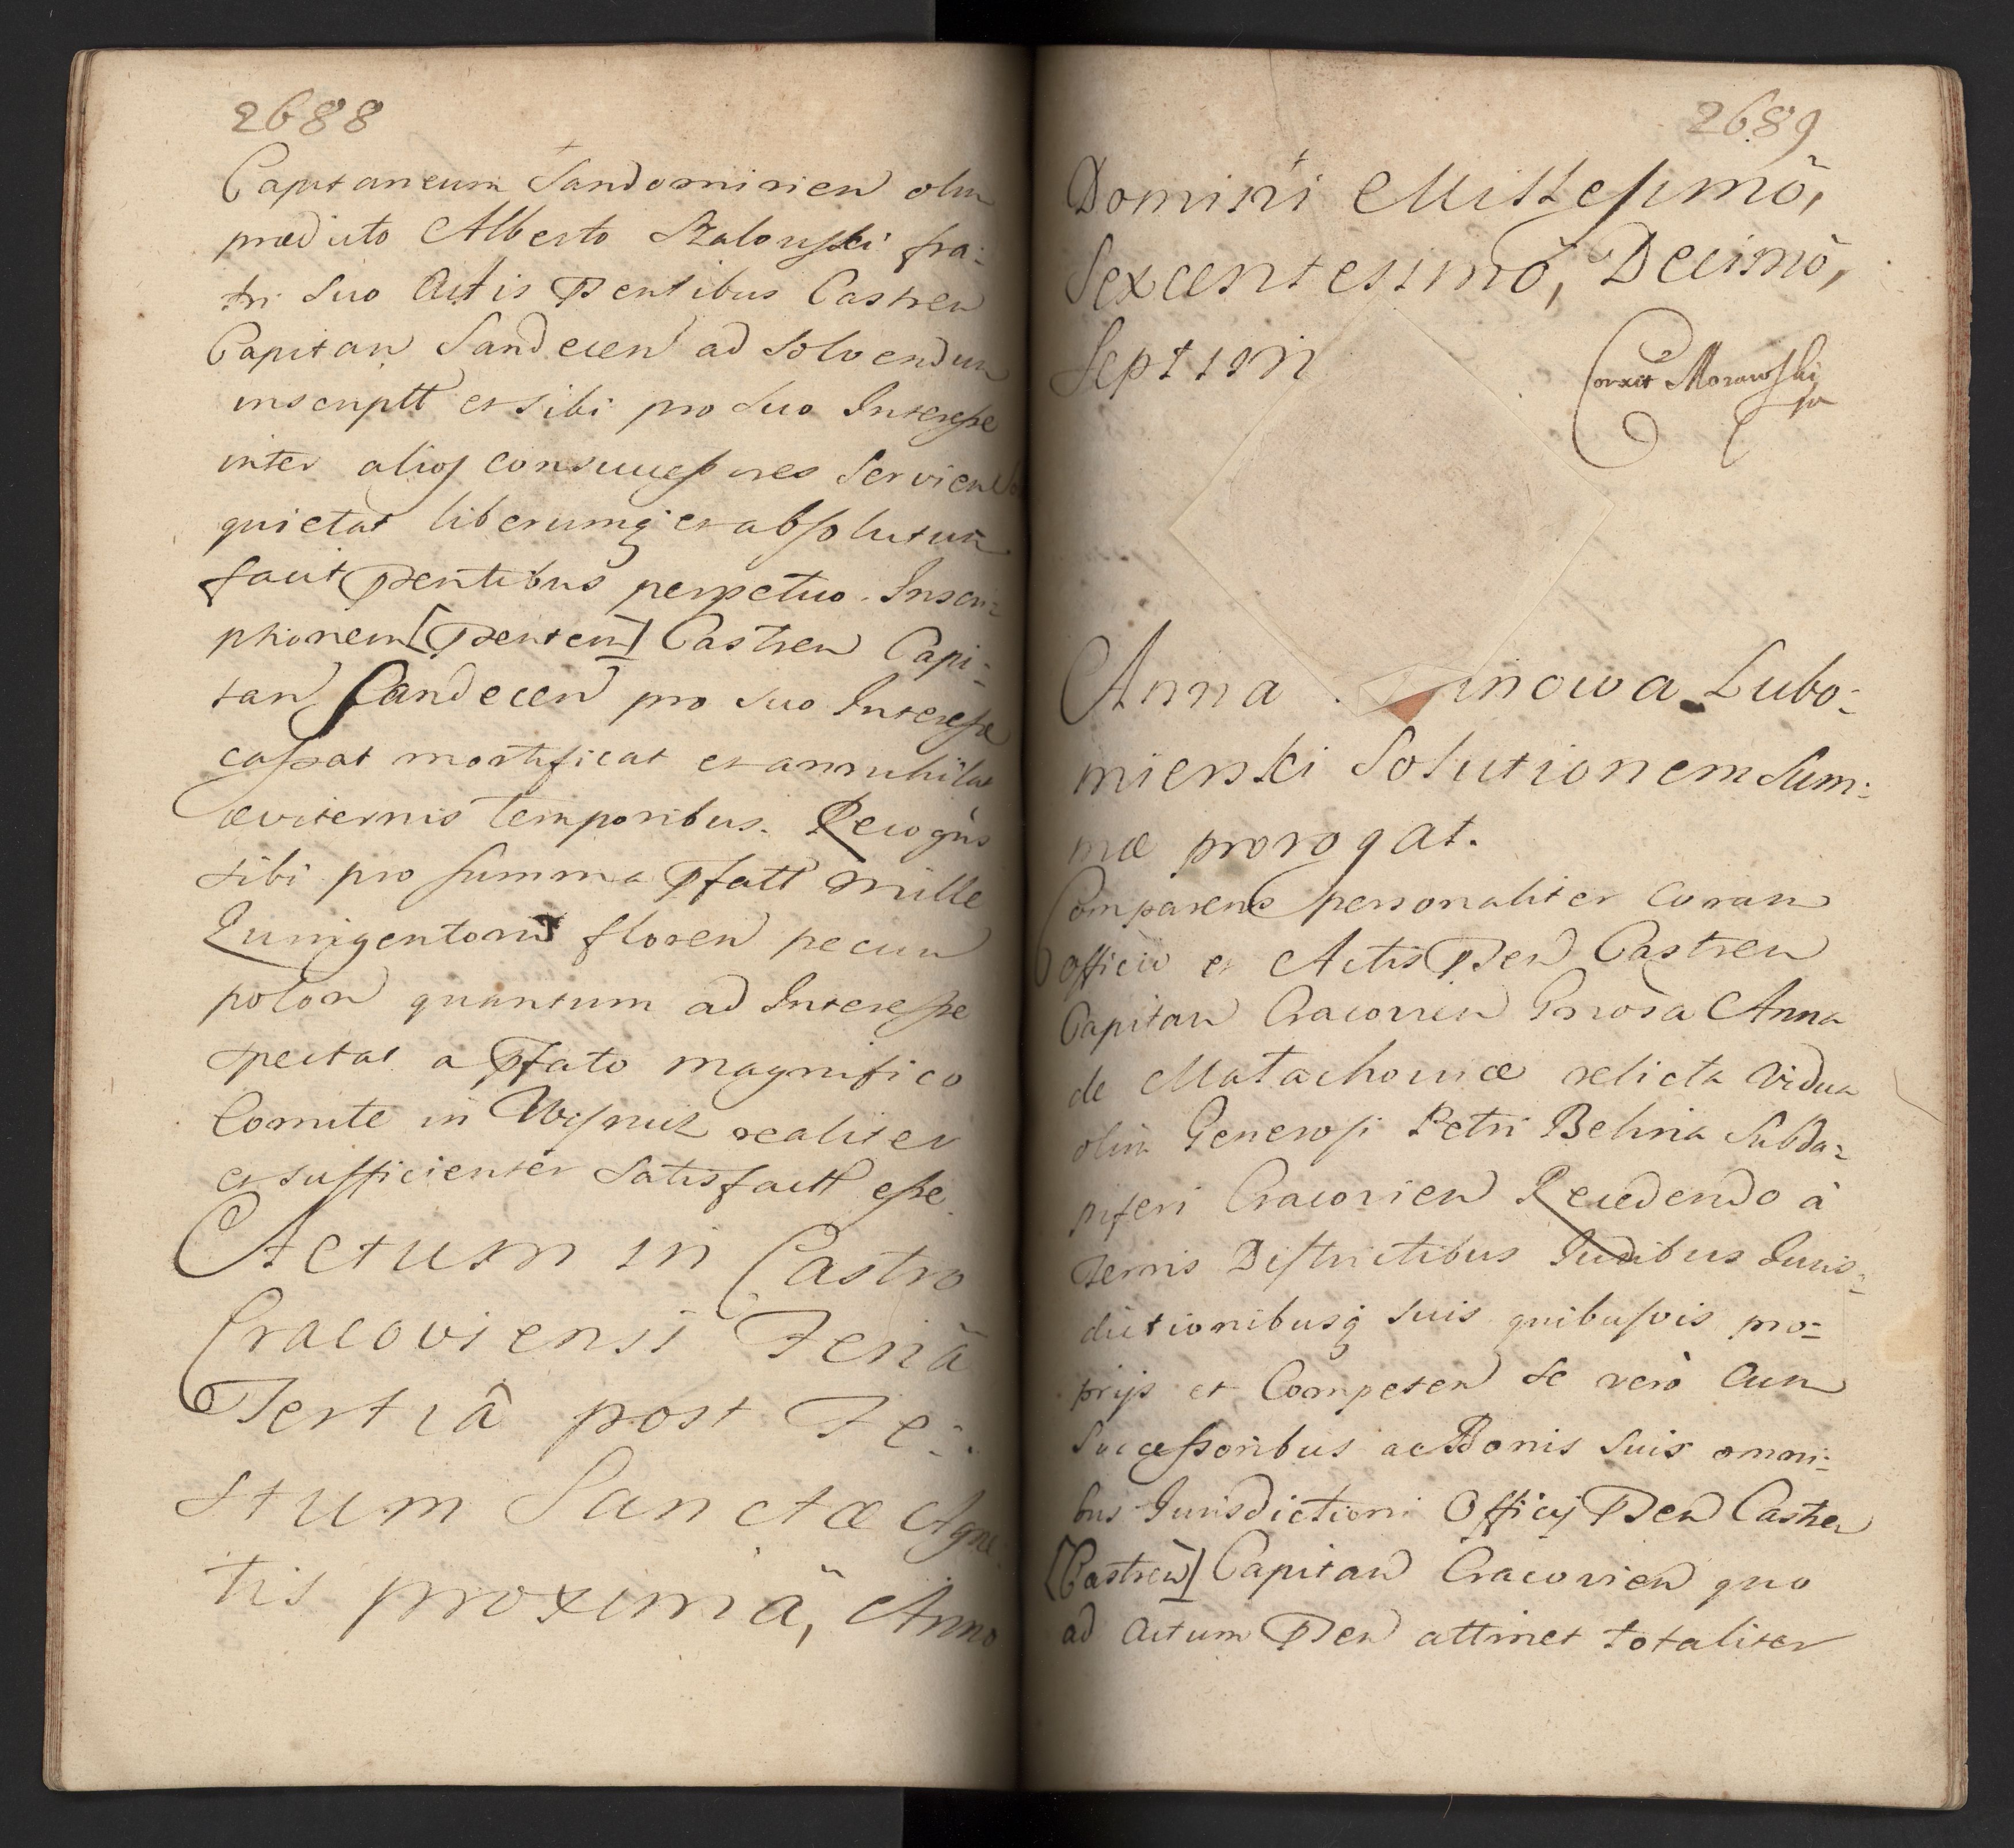 2688
Capitaneum Sandomirien olim
prædicto Alberto Stalowski fra:
tri Suo Actis Psentibus Castren
Capitan Sandecen ad Solvendum
inscriptt et sibi pro Suo Interesse
inter alios consuccessores Servien
quietat liberumq et absolutum
facit Psentibus perpetuo. Inscri:
ptionem [Psentem] Castren Capi:
tan Sandecen pro Suo Interesse
cassat mortificat et annuhilat
æviternis temporibus. Recogns
sibi pro summa Pfatt Mille
Quingentorum floren pecun
polon quantum ad Interesse
spectat a Pfato magnifico
Comite in Wisnicz realiter
et sufficienter Satisfactt esse.
Actum in Castro
Cracoviensi Feriâ
Tertiâ post Fe:
stum Sanctæ Agne
tis proximâ, Anno
2689
Domini Millesimô,
Sexcentesimô, Decimô,
Septim
Corexit Morawski
Anna inowa Lubo:
mierski Solutionem Sum:
mæ prorogat.
Comparens personaliter coram
Officio et Actis Psen Castren
Capitan Cracovien Gnosa Anna
de Matachowice relicta Vidua
olim Generosi Petri Belina Subda:
piferi Cracovien Recedendo à
Terris Districtibus Judibus Juris:
dictionibusq suis quibusvis pro:
prijs et Competen Se verò Cum
Successoribus ac Bonis Suis omni:
bus Jurisdictioni Officij Psen Castren
[Castren] Capitan Cracovien quo
ad actum Psen attinet totaliter